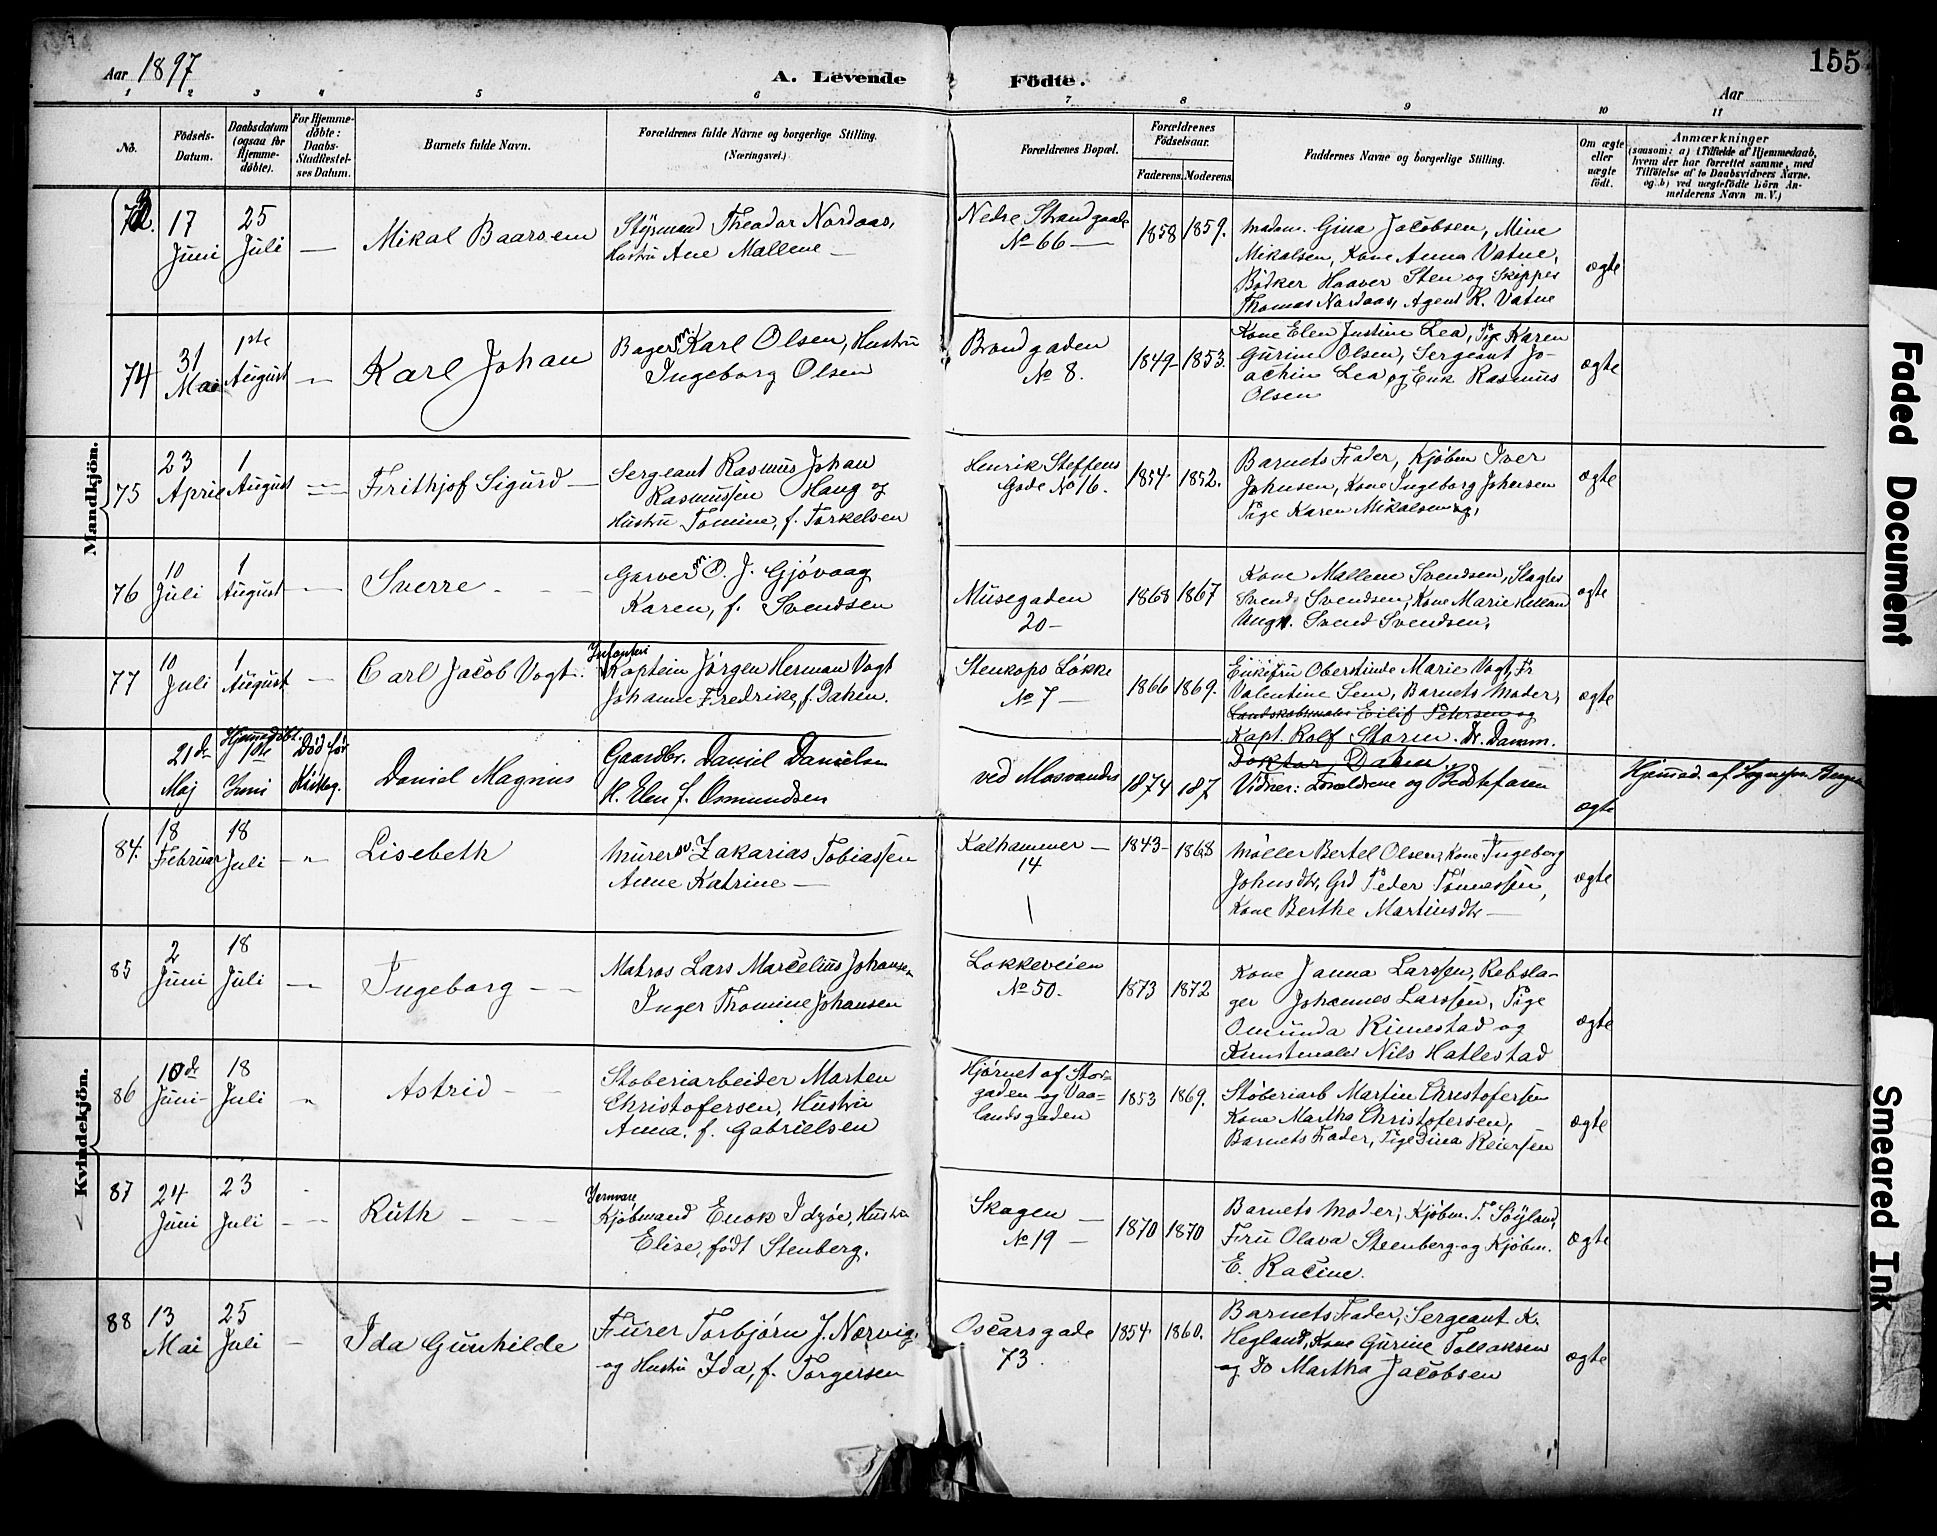 155
Aar 1897
A. Levende Födte.
Aar
1 2 3 4 5 6 7 8 9 10 11
No.
Födsels-
Datum.
Daabsdatum
(ogsaa for
Hjemme-
døbte).
For Hjemme-
døbte:
Daabs-
Stadfæstel-
ses Datum.
Barnets fulde Navn.
Forældrenes fulde Navne og borgerlige Stilling.
(Næringsvei.)
Forældrenes Bopæl.
Forældrenes
Födselsaar.
Faderens. Moderens.
Faddernes Navne og borgerlig Stilling.
Om ægte
eller
uægte
födt.
Anmærkninger
(saasom: a) i Tilfælde af Hjemmedaab,
hvem der har forrettet samme, med
Tilföielse af to Daabsvidners Navne.
og b) ved uægtefödte Börn An-
melderens Navn m.V.)
Mandkjön.
17
Juni
25
Juli
Mikal Baarsen
Styrmand Theodor Nordaas,
Hustru Ane Mallene
Nedre Strandgade
No 66
1858 1859.
Madam. Gina Jacobsen, Mine
Mikalsen, Kone Anna Vatne,
Bødker Haaver Sten og Skipper
Thomas Nordaas, Agent K. Vatne
ægte
74
31
Mai
1ste
August
Karl Johan
Bagersv. Karl Olsen, Hustru
Ingeborg Olsen
Brandgaden
No 8.
1849 1853.
Kone Elen Justine Lea, Pige Karen
Gurine Olsen, Sergeant Jo-
achin Lea og Enk Rasmus
Olsen
ægte
75
23
April
1
August
Frithjof Sigurd
Sergeant Rasmus Johan
Rasmussen Haug og
Hustru Tomine, f. Torkelsen
Henrik Steffens
Gade No 16.
1854 1852.
Barnets Fader, Kjøbm Iver
Johnsen, Kone Ingeborg Johnsen
Pige Karen Mikalsen
ægte
76
10
Juli
1
August
Sverre
Garversv. O. J. Gjøvaag
Karen, f. Svendsen
Musegaden
20
1868 1867
Kone Mallene Svendsen, Slagter
Svend Svendsen, Kone Marie Helland
Ungk. Svend Svendsen.
ægte
77
10
Juli
1
August
Carl Jacob Vogt
Infanteri
Kaptein Jörgen Herman Vogt
Johanne Fredrike, f. Dahen.
Stenkops Løkke
No 7
1866 1869.
Enkefru Oberstinde Marie Vogt, Fr
Valentine Sem, Barnets Moder,
Landskabsmaler Eilif Petersen og
Kapt. Rolf Storm. Dr. Damm.
Doktor Dahen.
ægte
21de
Maj
Hjemmedöbt
1ste
Juni
Död för
Kirkeg.
Daniel Magnus
Gaardbr. Daniel Danielsen
H. Elen f. Osmundsen
ved Mosvandet
1874 187
Vidner: Forældrene og Bedstefaren
ægte
Hjemmed. af Sognepr.
Kvindekjön.
84.
18
Februar
18
Juli
Lisebeth
Murersv. Zakarias Tobiassen
Anne Katrine
Kalhammer
14
1843 1868
Møller Bertel Olsen, Kone Ingeborg
Johnsdtr, Grd Peder Tønnessen,
Kone Berthe Martinsdtr
ægte
85
2
Juni
18
Juli
Ingeborg
Matros Lars Marcelius Johansen
Inger Thomine Johansen
Løkkeveien
No 50.
1873 1872
Kone Janna Larssen, Rebsla-
ger Johannes Larssen, Pige
Omunda Rimestad og
Kunstmaler Nils Hatlestad
ægte
86
10de
Juni
18
Juli
Astrid
Støberiarbeider Morten
Christofersen, Hustru
Anna, f. Gabrielsen
Hjørnet af Stor-
gaden og Vaa-
landsgaden
1853 1869.
Støberiarb Martin Christofersen
Kone Martha Christofersen,
Barnets Fader, Pige Dina Reiersen
ægte
87
24
Juni
23
Juli
Ruth
Jernvare
Kjøbmand Enok Idzøe, Hustru
Elise, født Stenberg.
Skagen
No 19
1870 1870
Barnets Moder, Kjøbm. T. Søyland,
Fru Olava Steenberg og Kjøbm.
E. Racine.
ægte
88
13
Mai
25
Juli
Ida Gunhilde
Furer Torbjørn J. Nærvig,
og Hustru Ida, f. Torgersen
Oscarsgade
73.
1854 1860.
Barnets Fader, Sergeant K.
Hegland, Kone Gurine Tollaksen
og Do Martha Jacobsen
ægte
Faded Document
Smeared Ink